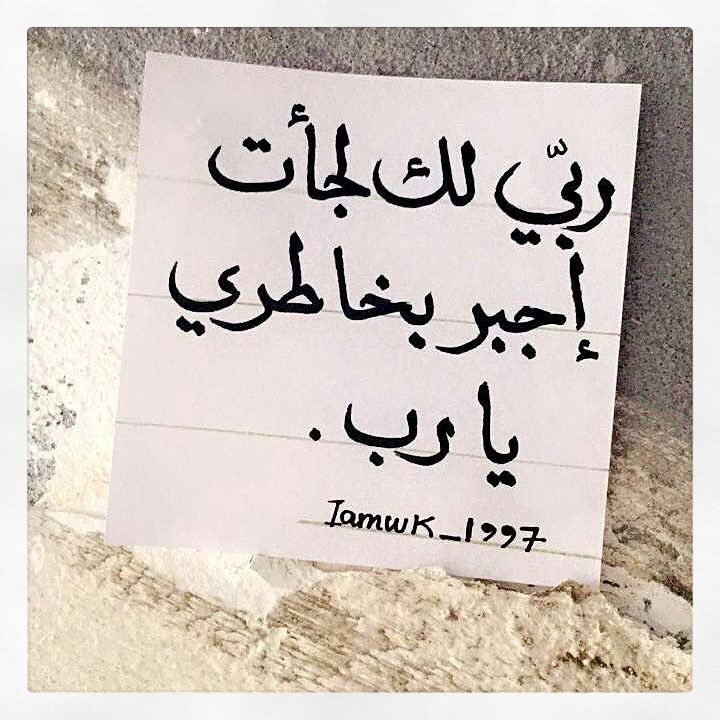 ربّي لك لجأت
إجبر بخاطري
يا رب .
Iamwk_1997